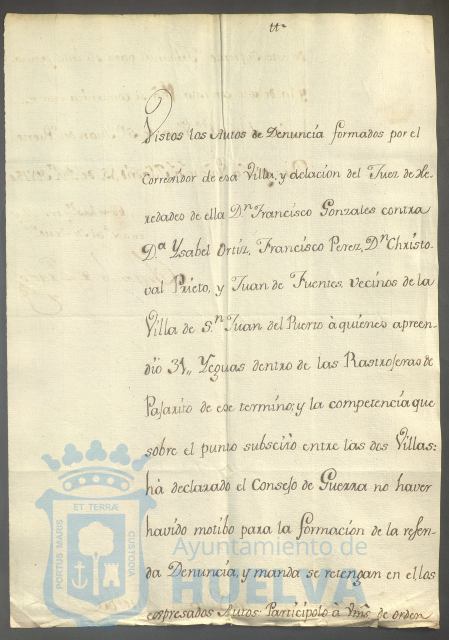 Vistos los Autos de Denuncia formados por el
Corregidor de esa Villa, y delacion del Juez de He-
redadeo de ella Dn. Francisco Gonzales contra
D.a Ysabel Ortiz, Francisco Perez, Dn. Christo-
val Prieto, y Juan de Fuentes, vecinos de la
Villa de S.n Juan del Puerto à quienes apreen-
dio 31,, Yeguas dentro de las Rastrojeras de
Pajarito de ese termino; y la competencia que
sobre el punto subscitò entre las dos Villas:
hà declarado el Consejo de Guerra no haver
havido motibo para la formacion de la referi-
da Denuncia, y manda se retengan en el, los
expresados Autos: Participolo à Vms. de orden
PORTUS MARIS ET TERRÆ CUSTODIA
Ayuntamiento de
HUELVA